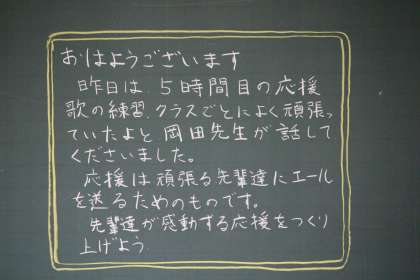 おはようございます
昨日は、5時間目の応援
歌の練習、クラスごとによく頑張っ
ていたよと、岡田先生が話して
くださいました。
応援は頑張る先輩達にエール
を送るためのものです。
先輩達が感動する応援をつくり
上げよう